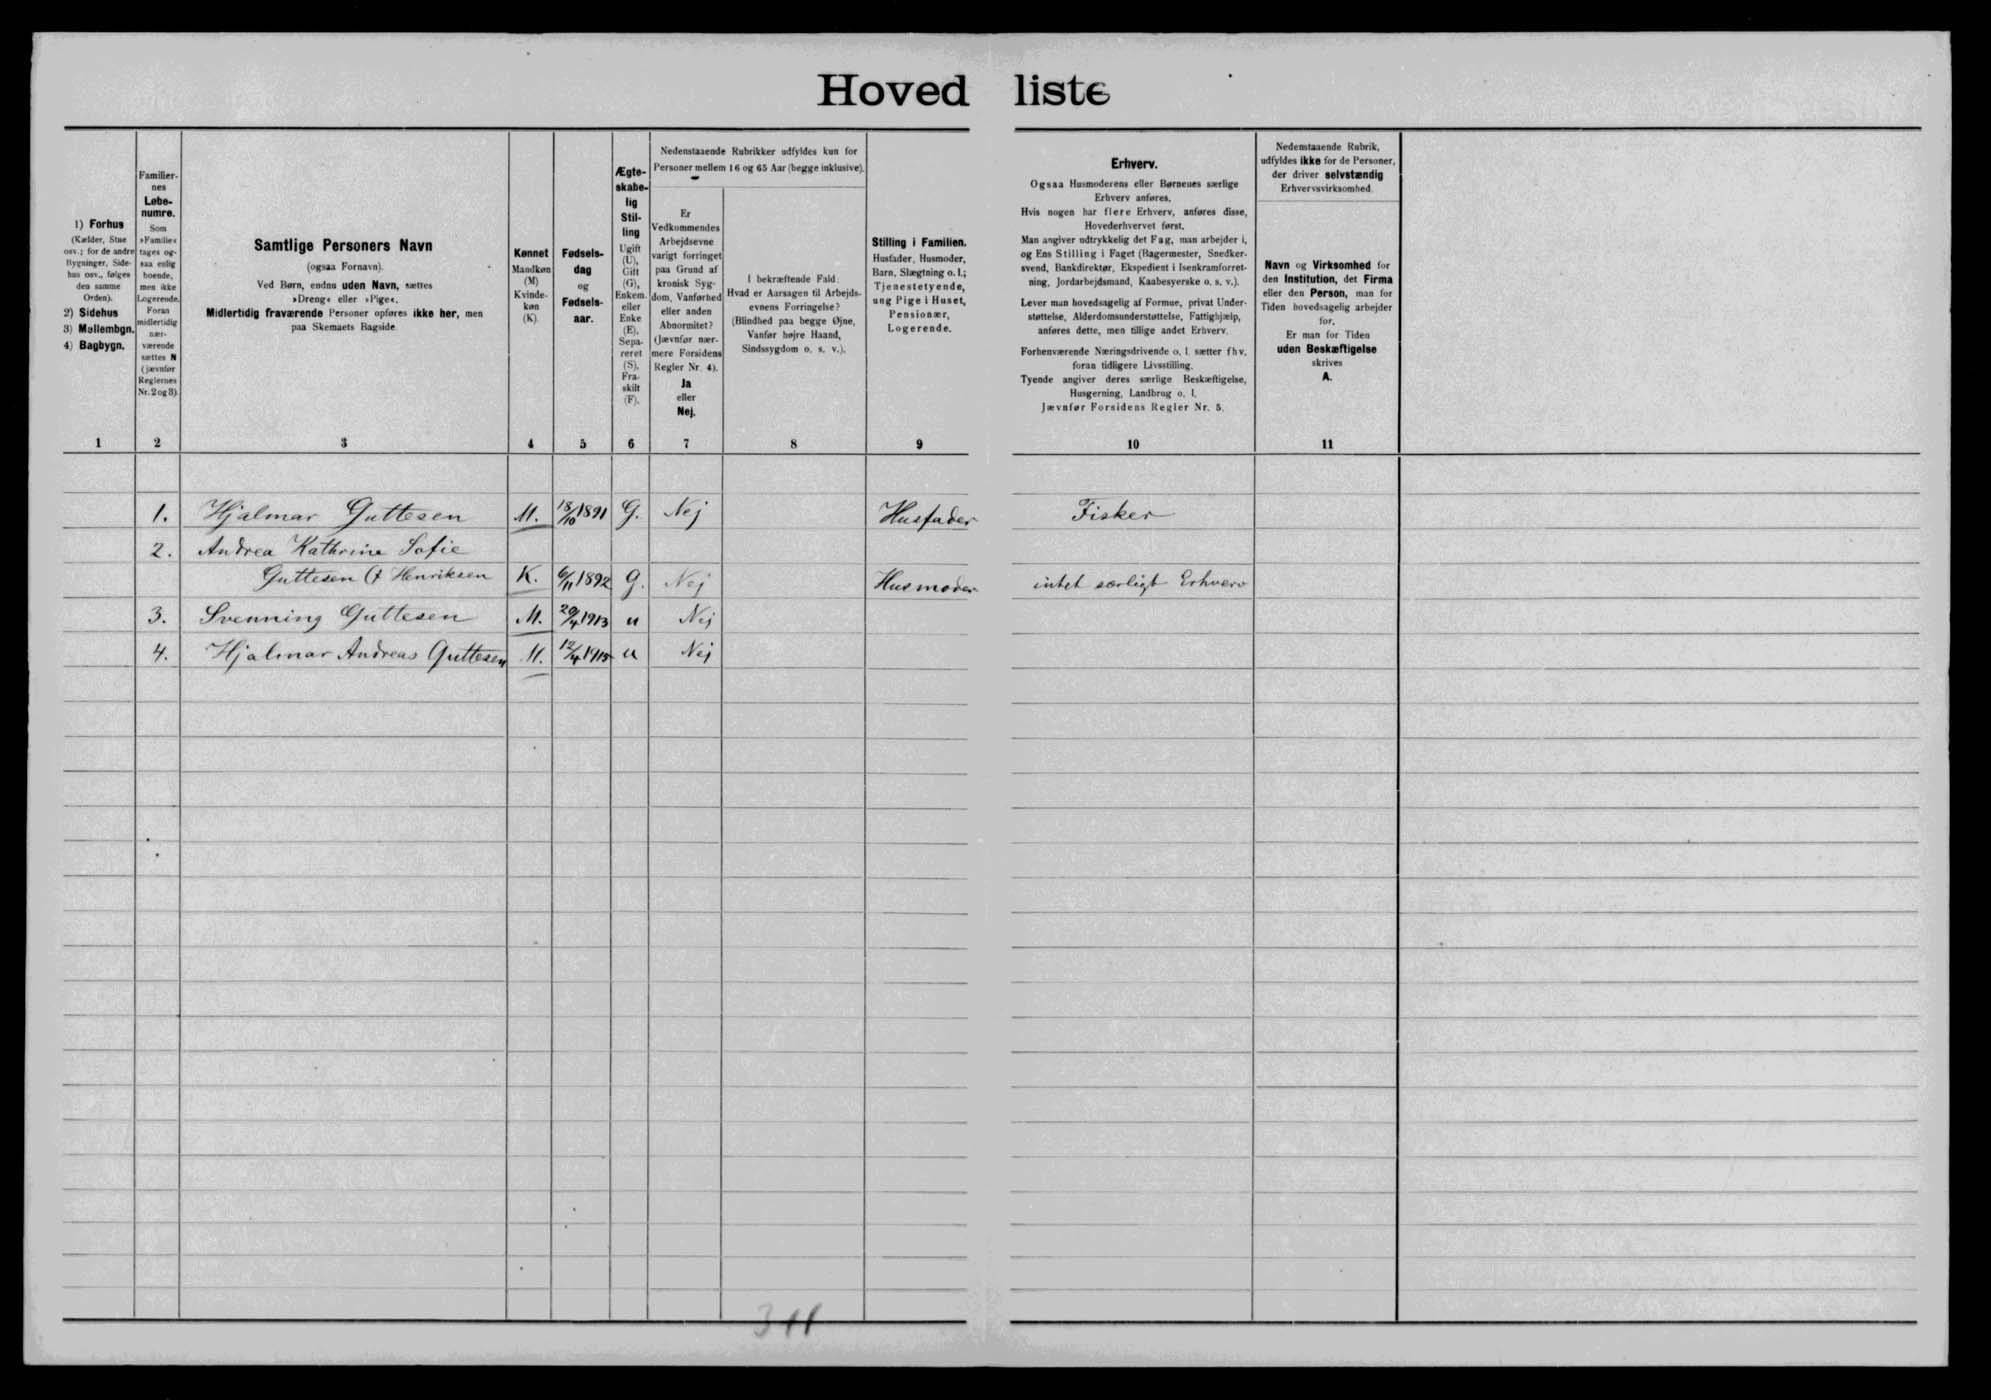 Hoved liste
1) Forhus
(Kælder, Stue
osv.; for de andre
Bygninger, Side-
hus osv., følges
den samme
Orden).
2) Sidehus
3) Mellembgn.
4) Bagbygn.
1
Familier-
nes
Løbe-
numre.
Som
»Familie«
tages og-
saa enlig
boende,
men ikke
Logerende.
Foran
midlertidig
nær-
værende
sættes N
(jævnfør
Reglernes
Nr. 2 og 3).
2
Samtlige Personers Navn
(ogsaa Fornavn).
Ved Børn, endnu uden Navn, sættes
»Dreng« eller »Pige«.
Midlertidig fraværende Personer opføres ikke her, men
paa Skemaets Bagside.
3
Kønnet
Mandkøn
(M)
Kvinde-
køn
(K).
4
Fødsels-
dag
og
Fødsels-
aar.
5
Ægte-
skabe-
lig
Stil-
ling
Ugift
(U),
Gift
(G),
Enkem.
eller
Enke
(E),
Sepa-
reret
(S),
Fra-
skilt
(F).
6
Nedenstaaende Rubrikker udfyldes kun for
Personer mellem 16 og 65 Aar (begge inklusive).
Er
Vedkommendes
Arbejdsevne
varigt forringet
paa Grund af
kronisk Syg-
dom, Vanførhed
eller anden
Abnormitet?
(Jævnfør nær-
mere Forsidens
Regler Nr. 4).
Ja
eller
Nej.
7
I bekræftende Fald:
Hvad er Aarsagen til Arbejds-
evnens Forringelse?
(Blindhed paa begge Øjne,
Vanfør højre Haand,
Sindssygdom o. s. v.).
8
Stilling i Familien.
Husfader, Husmoder,
Barn, Slægtning o. l.;
Tjenestetyende,
ung Pige i Huset,
Pensionær,
Logerende.
9
Erhverv.
Ogsaa Husmoderens eller Børnenes særlige
Erhverv anføres.
Hvis nogen har flere Erhverv, anføres disse,
Hovederhvervet først.
Man angiver udtrykkelig det Fag, man arbejder i,
og Ens Stilling i Faget (Bagermester, Snedker-
svend, Bankdirektør, Ekspedient i Isenkramforret-
ning, Jordarbejdsmand, Kaabesyerske o. s. v.).
Lever man hovedsagelig af Formue, privat Under-
støttelse, Alderdomsunderstøttelse, Fattighjælp,
anføres dette, men tillige andet Erhverv.
Forhenværende Næringsdrivende o. l. sætter fhv.
foran tidligere Livsstilling.
Tyende angiver deres særlige Beskæftigelse,
Husgerning, Landbrug o. l.
Jævnfør Forsidens Regler Nr. 5.
10
Nedenstaaende Rubrik,
udfyldes ikke for de Personer,
der driver selvstændig
Erhvervsvirksomhed.
Navn og Virksomhed for
den Institution, det Firma
eller den Person, man for
Tiden hovedsagelig arbejder
for.
Er man for Tiden
uden Beskæftigelse
skrives
A.
11
1. Hjalmar Guttesen M. 18/10 1891 G. Nej Husfader Fisker
2. Andrea Kathrine Sofie
Guttesen (f Henriksen K. 6/11 1892 G. Nej Husmoder intet særligt Erhverv
3. Svenning Guttesen M. 20/4 1913 u Nej
4. Hjalmar Andreas Guttesen M. 12/4 1915 u Nej
311